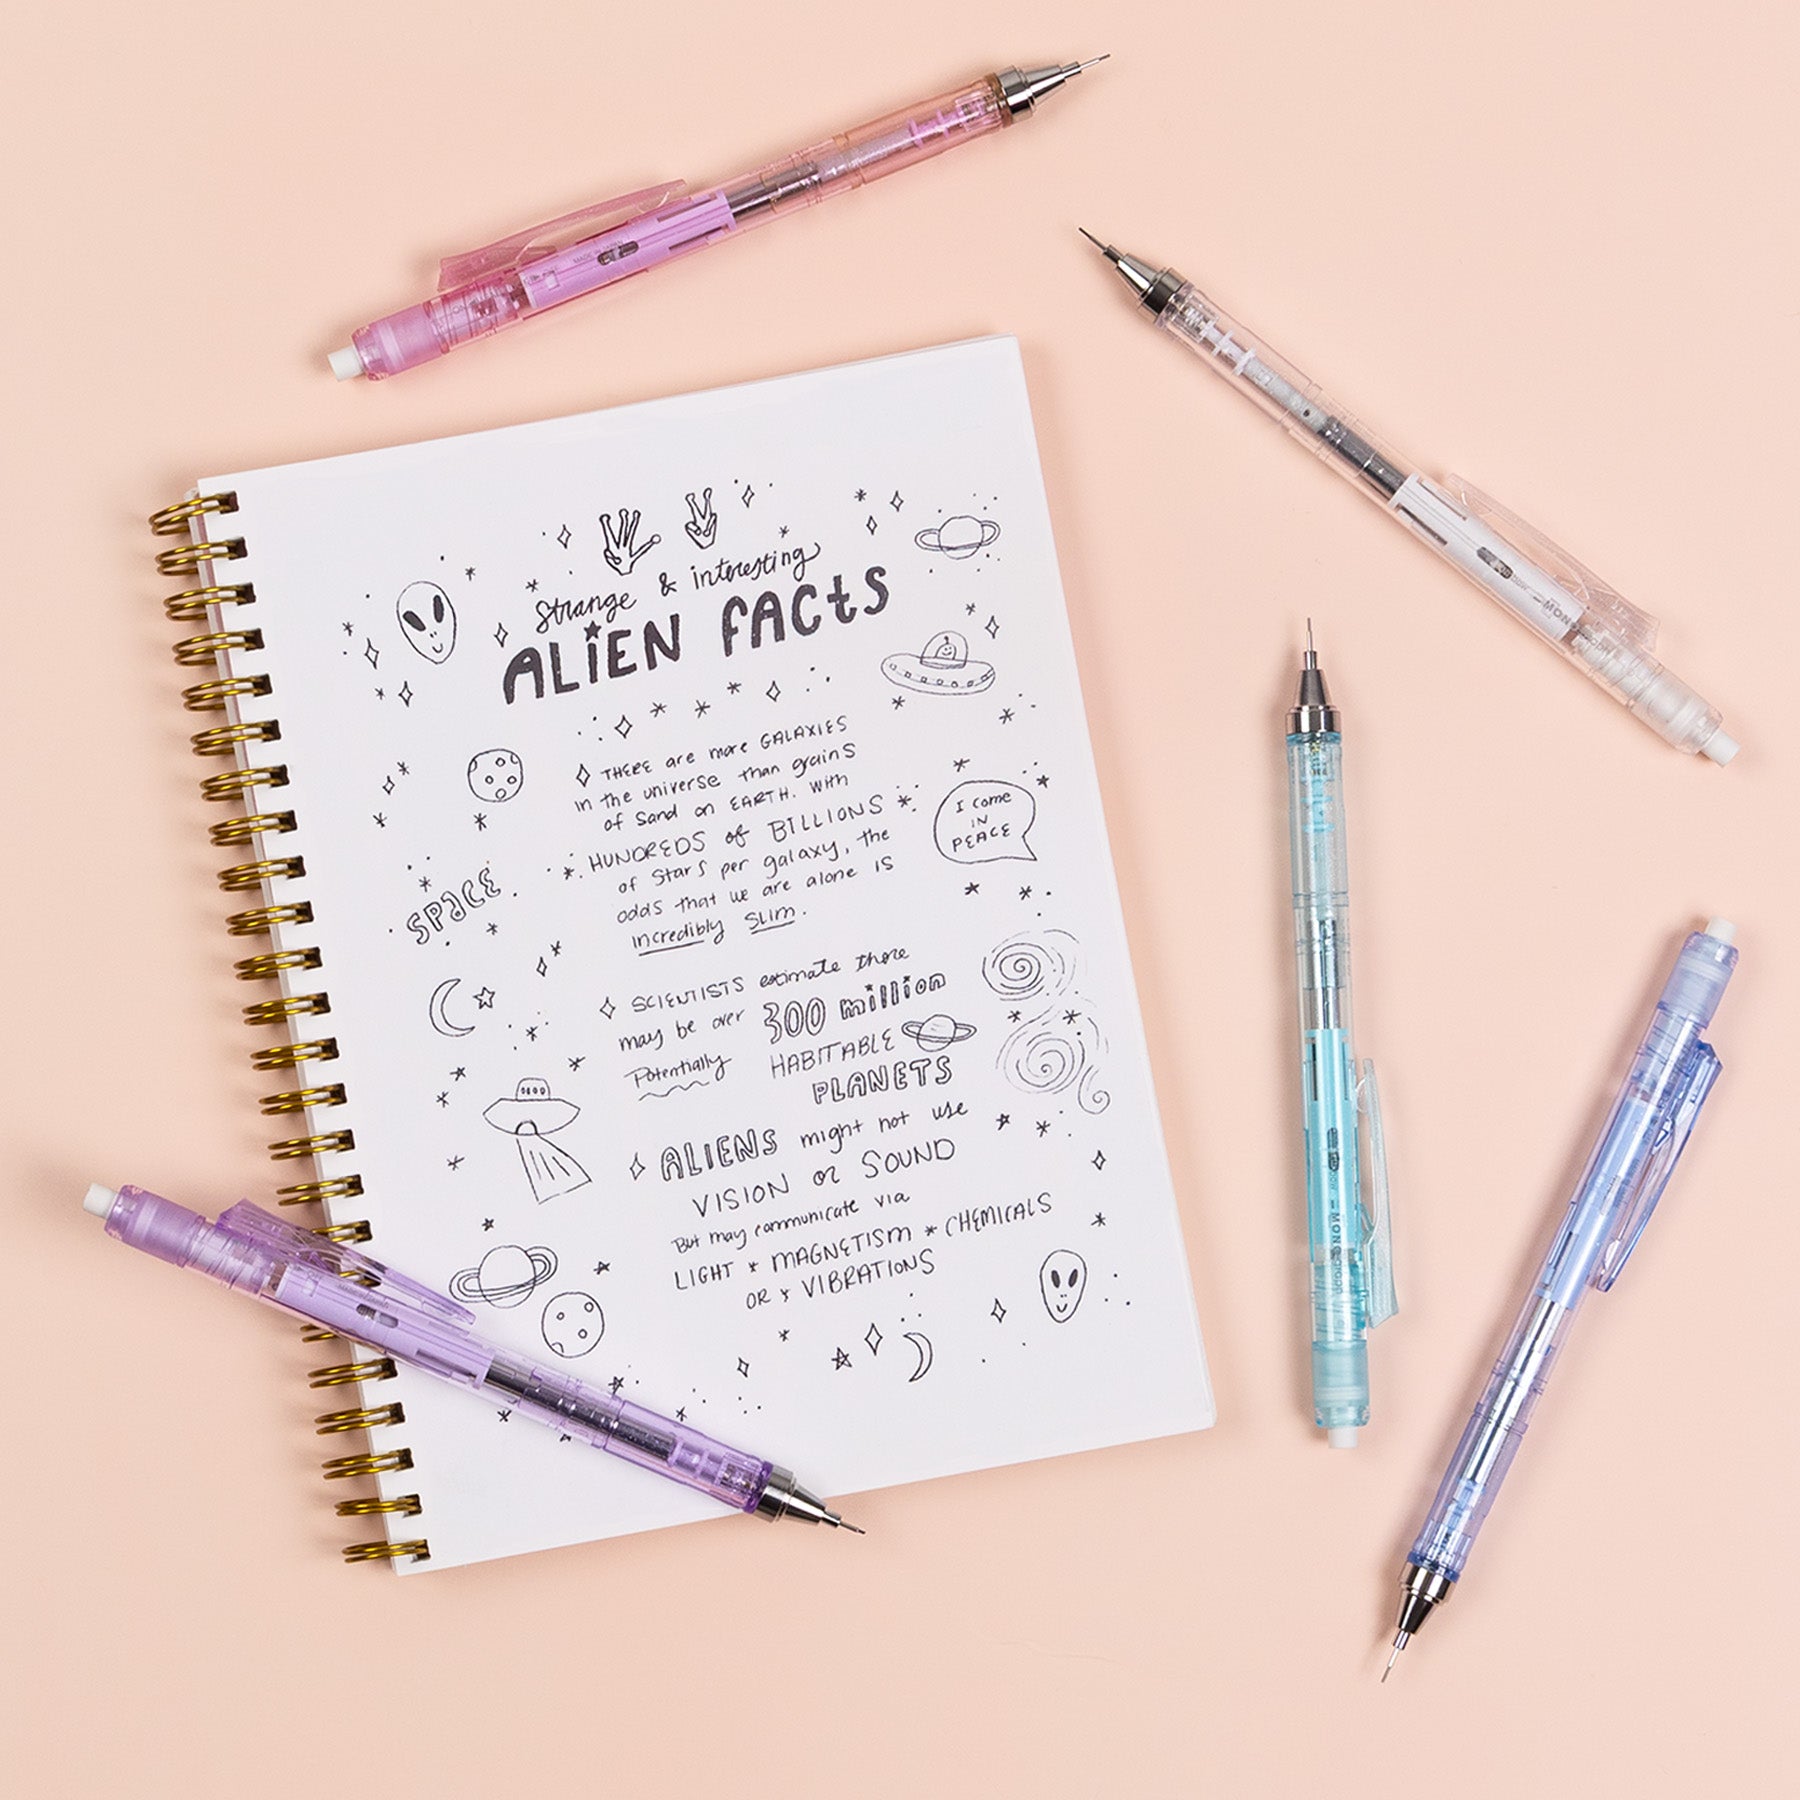 Strange & interesting
ALiEN FACtS
THERE are more GALAXIES
in the universe than grains
of sand on EARTH. With
HUNDREDS of BILLIONS
of Stars per galaxy, the
odds that we are alone is
incredibly SLIM.
I come
IN
PEACE
SPaCE
SCIENTISTS estimate there
may be over 300 million
Potentially HABITABLE
PLANETS
ALIENS might not use
VISION or SOUND
But may communicate via
LIGHT * MAGNETISM * CHEMICALS
OR * VIBRATIONS
MADE IN JAPAN
MONO graph
MONO graph